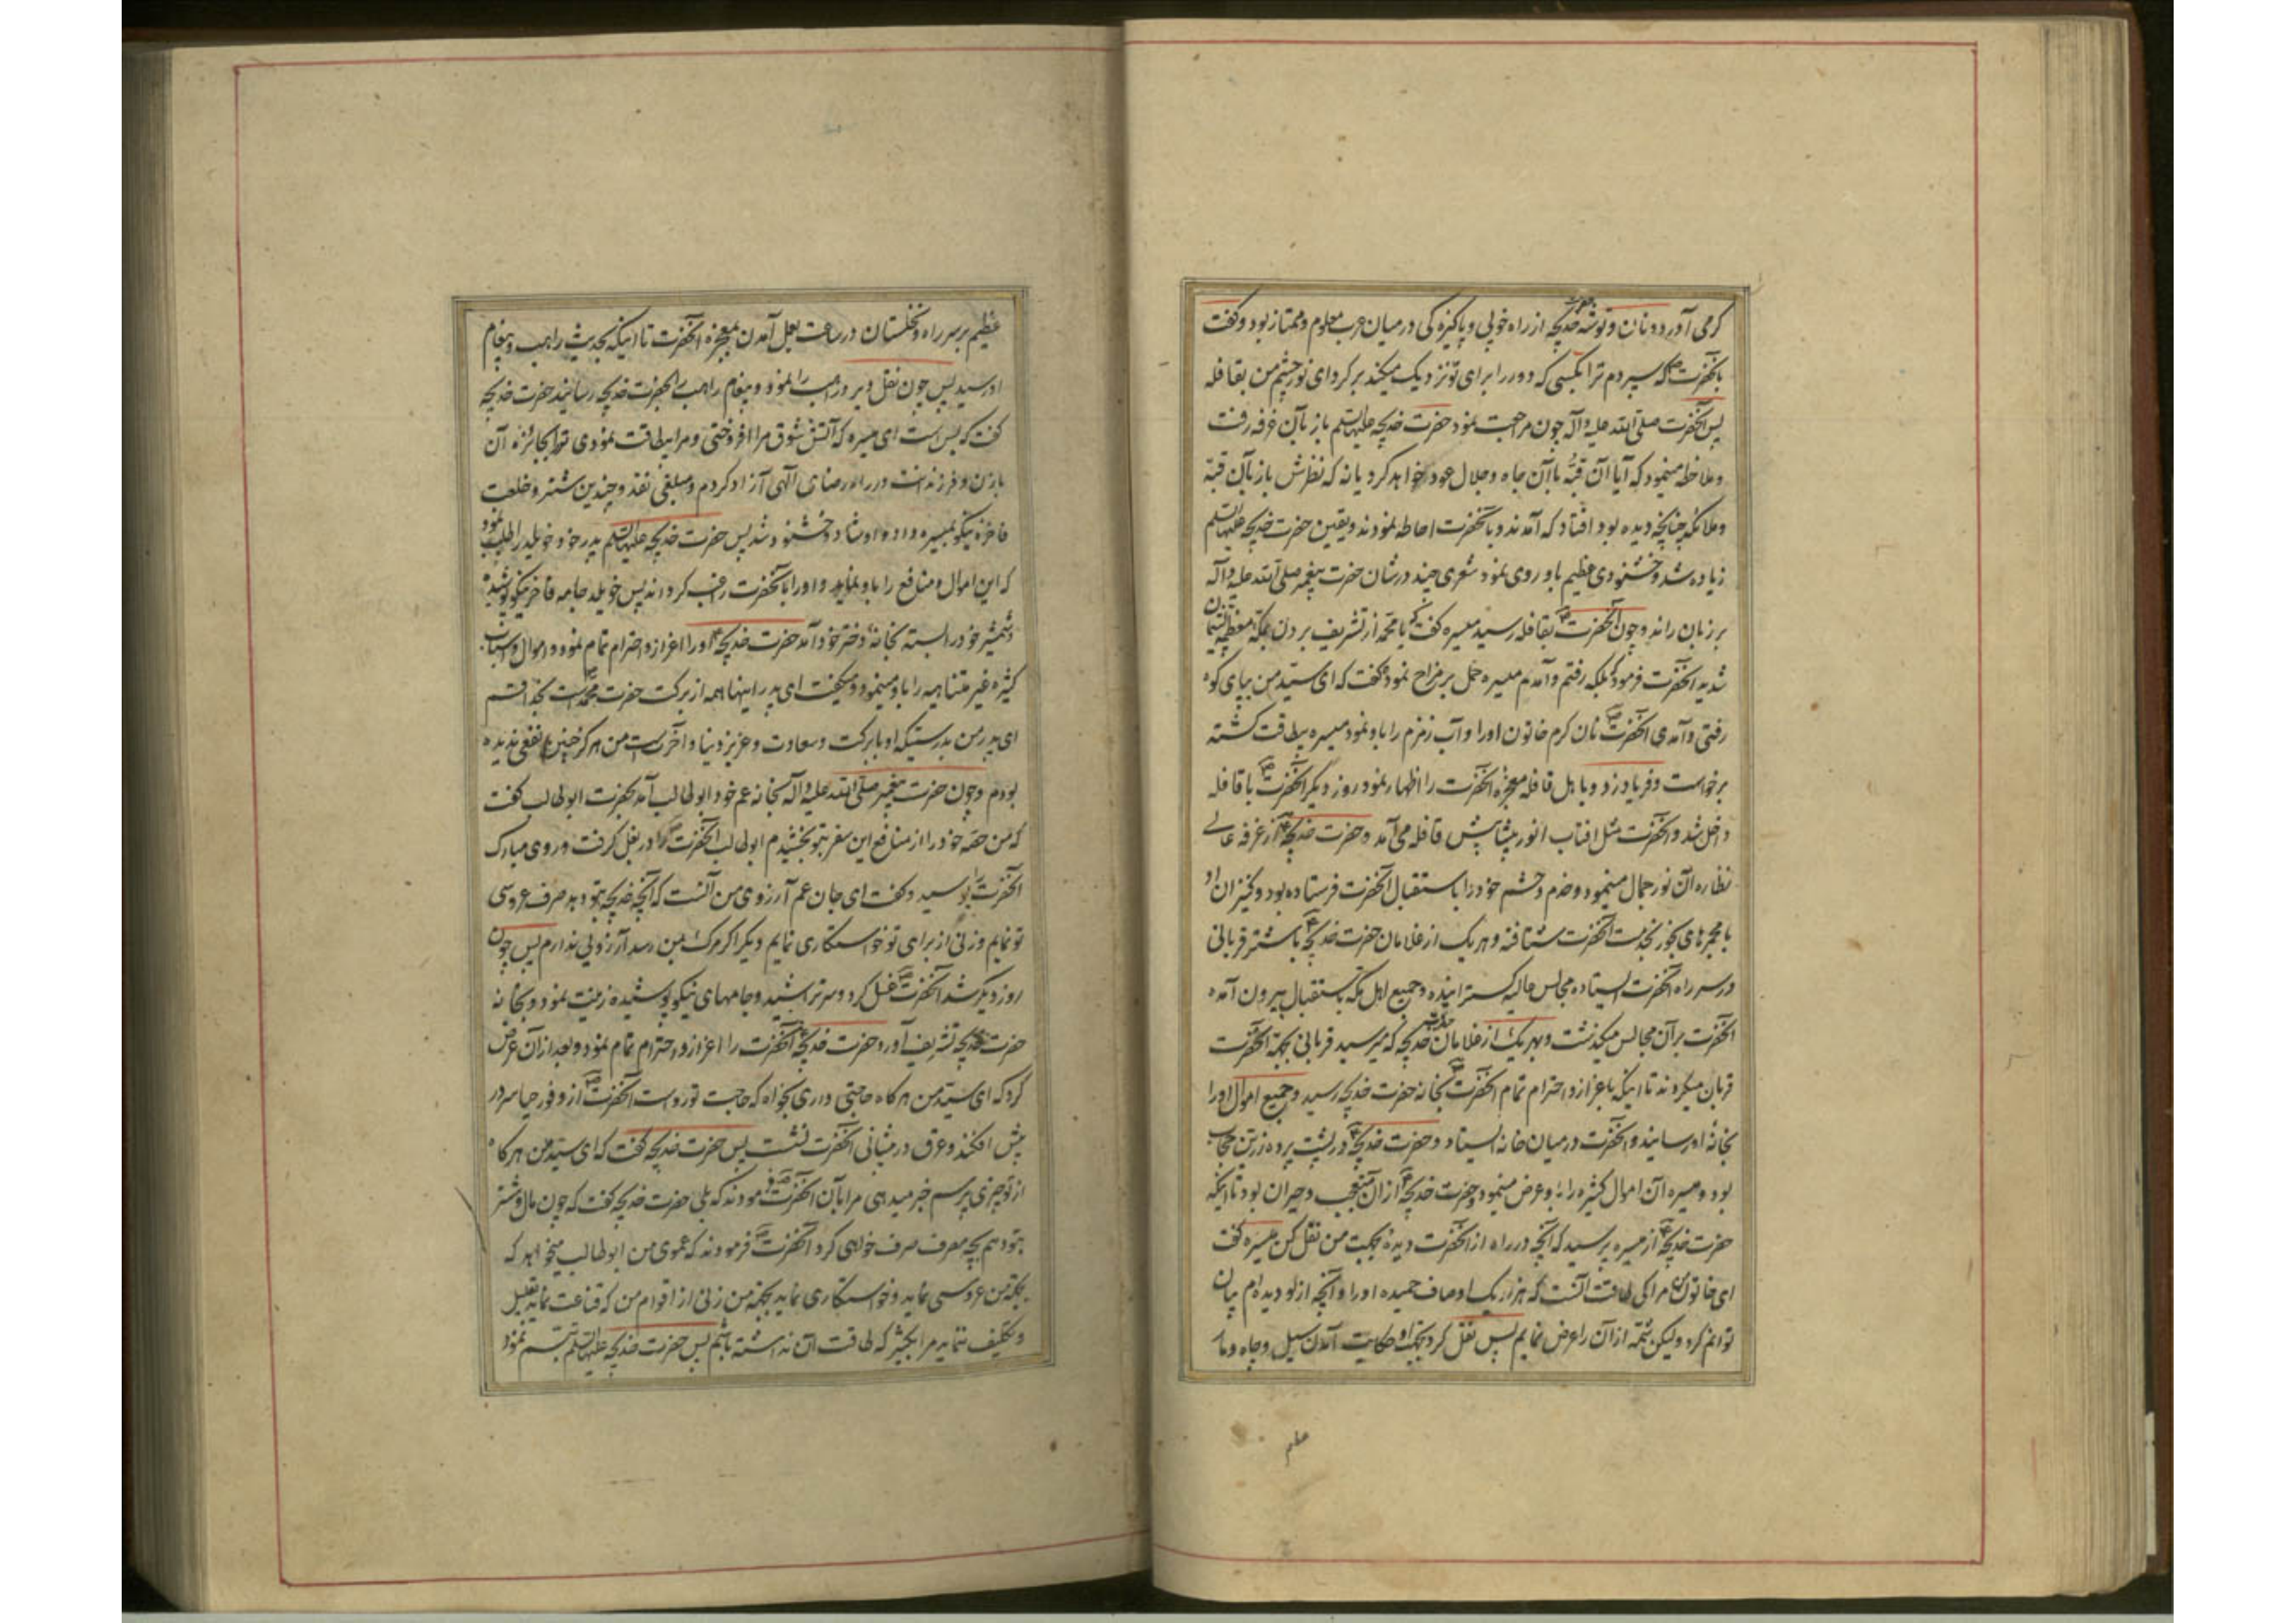 کرمی آورد و نان و توشه حضرت خدیجه از راه خوبی و پاکیزه کی در میان عرب معلوم و ممتاز بود و کفت
بآنحضرت که سپردم ترا بکسی که دور را برای تو نزدیک میکند برکرد ای نور چشم من بقافله
پس آنحضرت صلی الله علیه و آله چون مراجعت نمود حضرت خدیجه علیها السلم باز بآن غرفه رفت
و ملاحظه مینمود که آیا آن قبّه باآن جاه و جلال عود خواهد کرد یا نه که نظرش باز بآن قبّه
و ملائکه چنانچه دیده بود افتاد که آمدند و بآنحضرت احاطه نمودند و یقین حضرت خدیجه علیها السلم
زیاده شد و خشنودی عظیم باو روی نمود شعری چند در شان حضرت پیغمبر صلی الله علیه و آله
بر زبان راند و چون آنحضرت بقافله رسید میسره کفت که یا محمد از تشریف بردن بمکه معظمه پشیمان
شدید آنحضرت فرمود که بلکه رفتم و آمدم میسره حمل بر مزاح نمود و کفت که ای سید من بپای کوه
رفتی و آمدی آنحضرت نان کرم خاتون او را و آب زمزم را باو نمود میسره بیطاقت کشته
برخواست و فریاد زد و با اهل قافله معجزه آنحضرت را اظهار نمود روز دیکر آنحضرت با قافله
داخل شد و آنحضرت مثل افتاب انور پیشاپیش قافله می آمد و حضرت خدیجه از غرفه عالی
نظاره آن نور جمال مینمود و خدم و حشم خود را باستقبال آنحضرت فرستاده بود و کنیزان او
با مجمرهای بخور بخدمت آنحضرت شتافته و هر یک از غلامان حضرت خدیجه با شتر قربانی
در سر راه آنحضرت ایستاده مجالس عالیه کسترانیده و جمیع اهل مکه باستقبال بیرون آمده
آنحضرت بر آن مجالس میکذشت و بهر یک از غلامان حضرت خدیجه که میرسید قربانی بجهة آنحضرت
قربان میکردند تا اینکه باعزاز و احترام تمام آنحضرت بخانه حضرت خدیجه رسید و جمیع اموال او را
بخانه او رسانید و آنحضرت در میان خانه ایستاد و حضرت خدیجه در پشت پرده زرین حجاب
بود و میسره آن اموال کثیره را باو عرض مینمود و حضرت خدیجه از آن متعجب و حیران بود تا اینکه
حضرت خدیجه از میسره پرسید که آنچه در راه از آنحضرت دیدهٔ بجهت من نقل کن میسره کفت
ای خاتون من مرا کی طاقت آنست که هزار یک اوصاف حمیده او را و آنچه از او دیده ام بیان
توانم کرد ولیکن شمّه از آن را عرض نمایم پس نقل کرد بجهت او حکایت آمدن سیل و چاه و مار
عظیم
عظیم بر سر راه و نخلستان در ساعت بعمل آمدن بمعجزه آنحضرت تا اینکه بحدیث راهب و پیغام
او رسید پس چون نقل دیر و راهب را نمود و پیغام راهب بحضرت خدیجه رسانید حضرت خدیجه
کفت که بس است ای میسره که آتش شوق مرا افروختی و مرا بیطاقت نمودی ترا بجائزه آن
با زن و فرزندانت در راه رضای آلهی آزاد کردم و مبلغی نقد و چندین شتر و خلعت
فاخره نیکو بمیسره داد و او شاد و خشنود شد پس حضرت خدیجه علیها السلم پدر خود خویلد را طلب نمود
که این اموال و منافع را باو نماید و او را بآنحضرت راغب کرداند پس خویلد جامه فاخر نیکو پوشید
و شمشیر خود را بسته بخانهٔ دختر خود آمد حضرت خدیجه او را اعزاز و احترام تمام نمود و اموال و اسباب
کثیره غیر متناهیه را باو مینمود و میکفت ای پدر اینها همه از برکت حضرت محمد است بخدا قسم
ای پدر من بدرستیکه او با برکت و سعادت و عزیز دنیا و آخرت است من هرکز چنین نفعی ندیده
بودم و چون حضرت پیغمبر صلی الله علیه و آله بخانه عم خود ابوطالب آمد بحضرت ابوطالب کفت
که من حصّه خود را از منافع این سفر بتو بخشیدم ابوطالب آنحضرت را در بغل کرفت و روی مبارک
آنحضرت را بوسید و کفت ای جان عم آرزوی من آنست که آنچه خدیجه بتو دهد صرف عروسی
تو نمایم و زنی از برای تو خواستکاری نمایم و دیکر اکر مرک بمن رسد آرزوئی ندارم پس چون
روز دیکر شد آنحضرت غسل کرد و سر تراشید و جامهای نیکو پوشیده زینت نمود و بخانه
حضرت خدیجه تشریف آورد حضرت خدیجه آنحضرت را اعزاز و احترام تمام نمود و بعد از آن عرض
کرد که ای سید من هرکاه حاجتی داری بخواه که حاجت تو رواست آنحضرت از وفور حیا سر در
پیش افکند و عرق در پیشانی آنحضرت نشست پس حضرت خدیجه کفت که ای سید من هرکاه
از تو چیزی پرسم خبر میدهی مرا بآن آنحضرت فرمودند که بلی حضرت خدیجه کفت که چون مال و شتر
بتو دهم بچه مصرف صرف خواهی کرد آنحضرت فرمودند که عموی من ابوطالب میخواهد که
بجهة من عروسی نماید و خواستکاری نماید بجهة من زنی از اقوام من که قناعت نماید بقلیل
و تکلیف ننماید مرا بکثیر که طاقت آن نداشته باشم پس حضرت خدیجه علیها السلم تبسم نمود